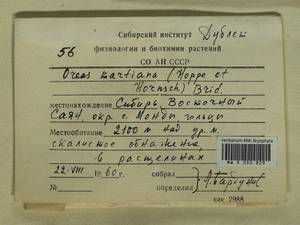 Сибирский институт Дублет
56 физиологии и биохимии растений
СО АН СССР
Oreas martiana (Hoppe et
Hornsch) Brid.
местонахождение Сибирь Восточный
Саян, окр. с. Монды, гольцы
Местообитание 2100 м над ур. м.
скалистое обнажение,
в расщелинах
22-VIII 1960г. собрал
определил Л. Бардунов